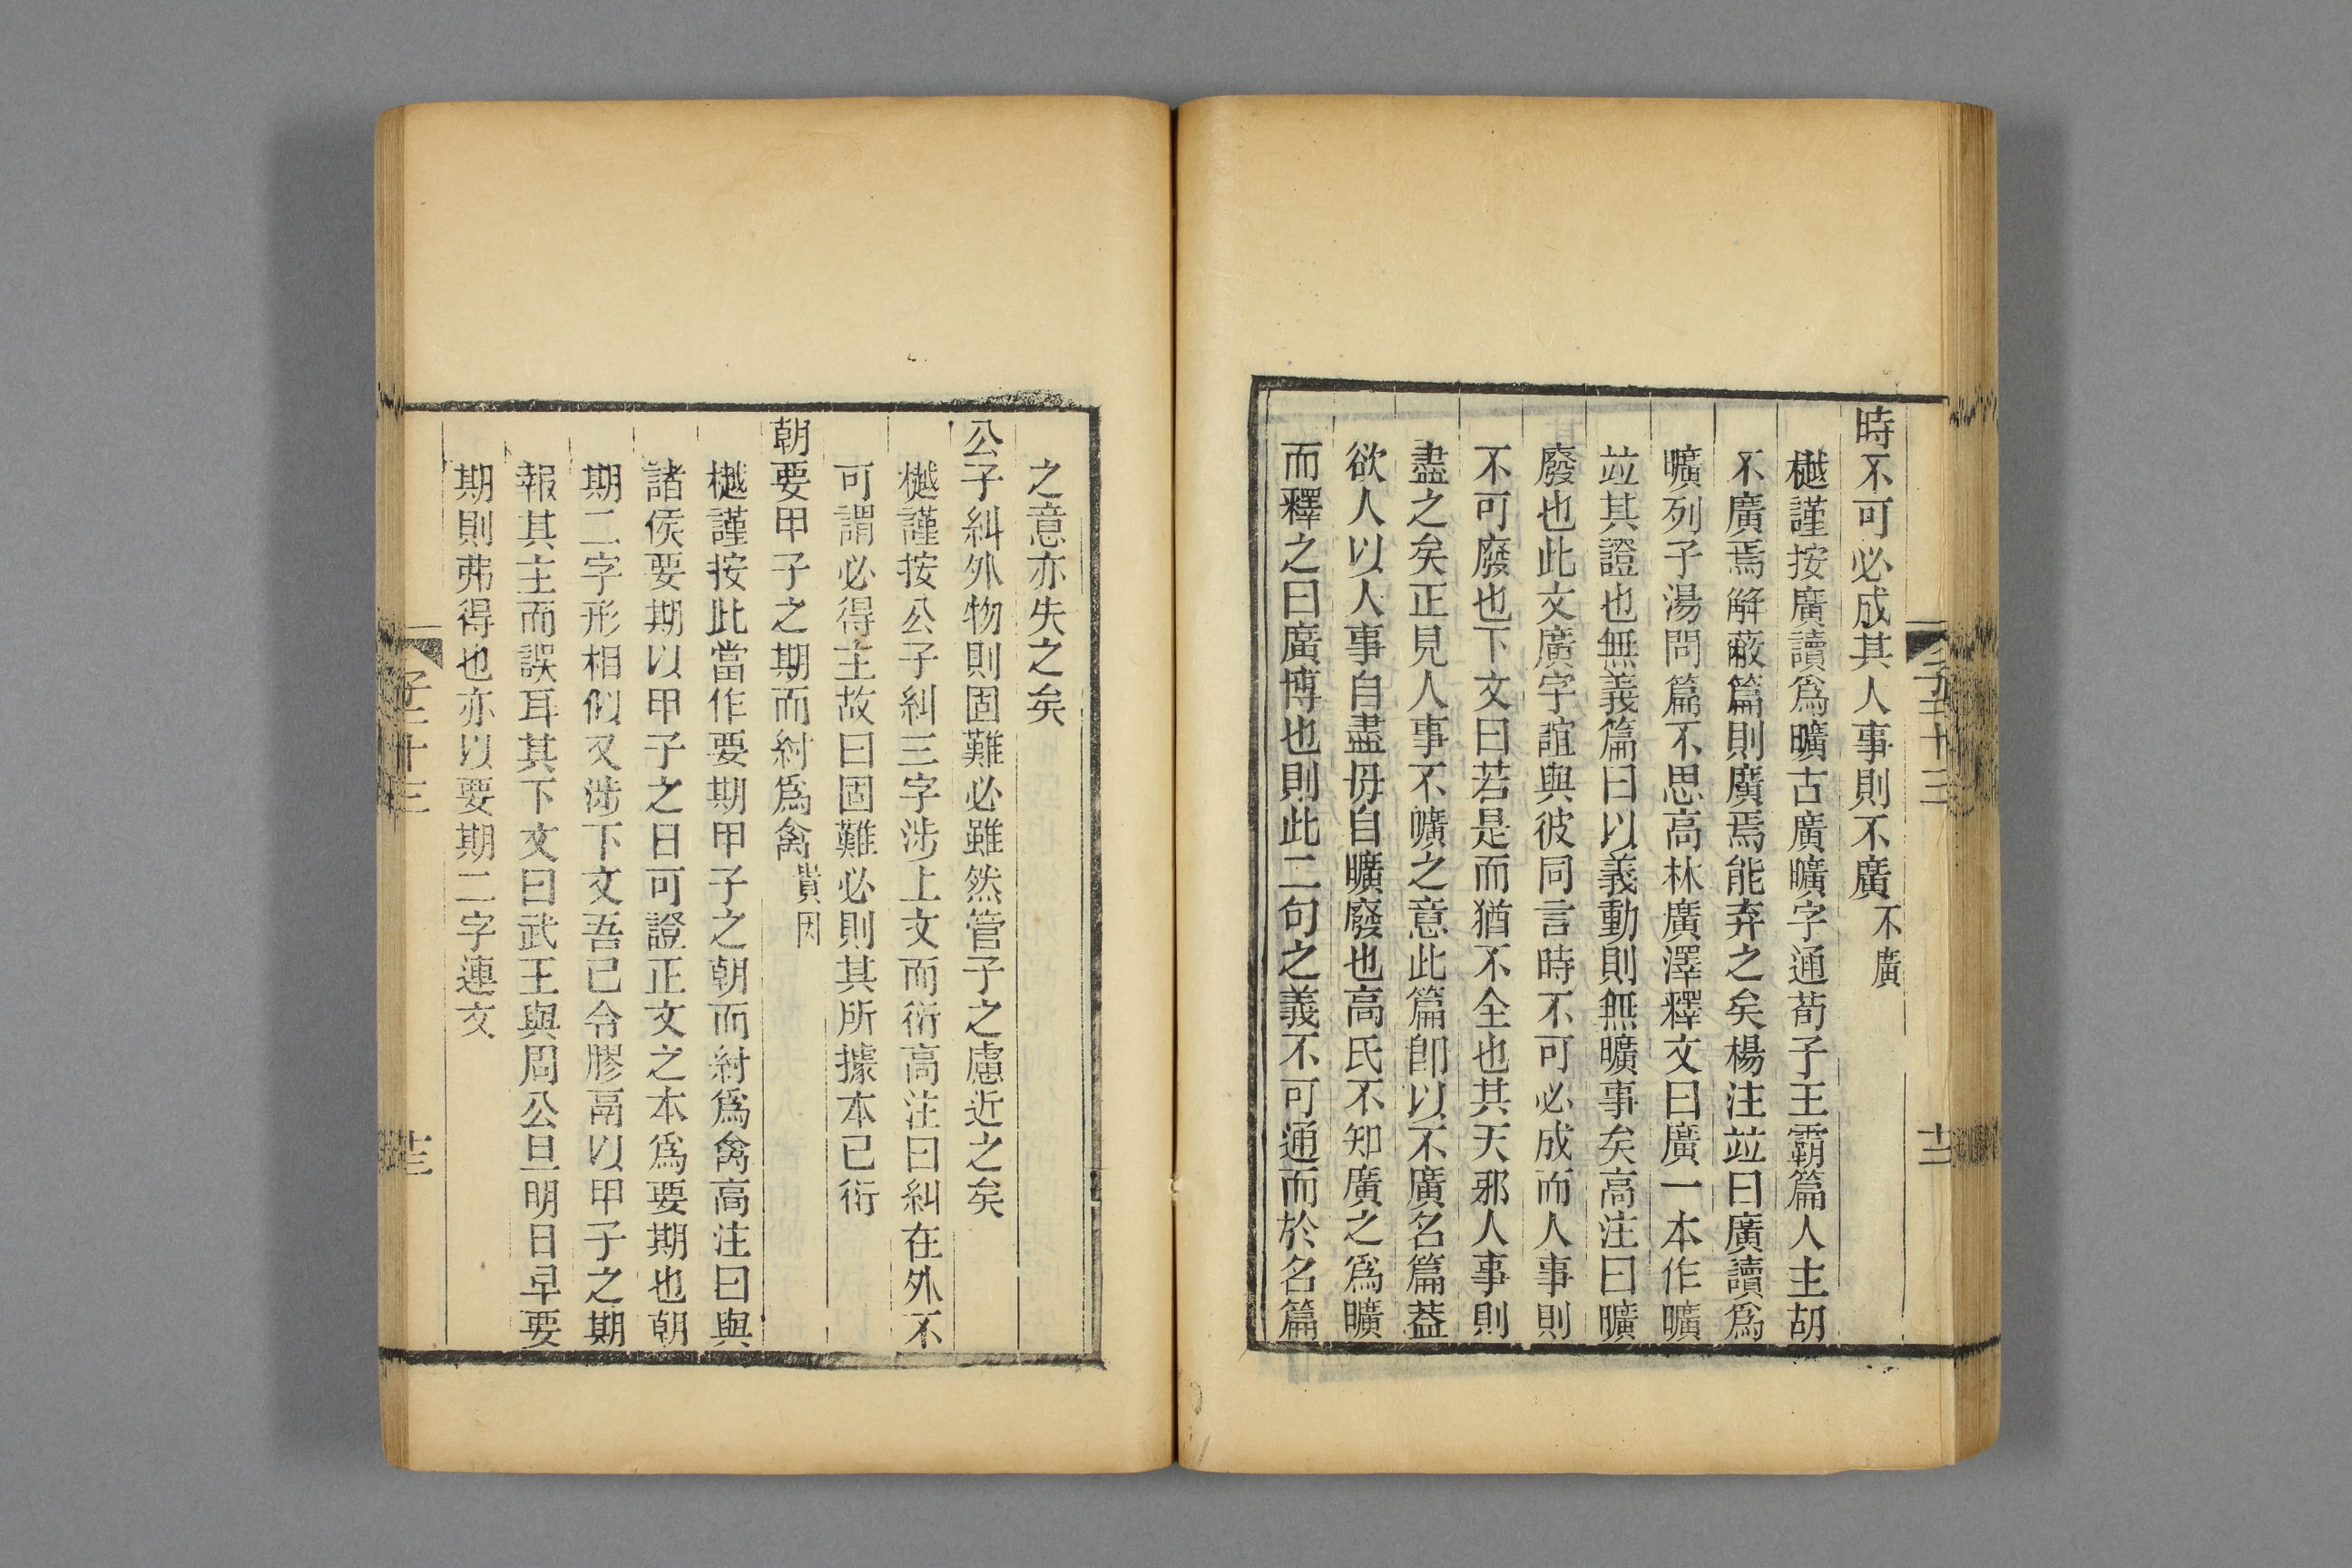 時不可必成其人事則不廣不廣
樾謹按廣讀爲曠古廣曠字通荀子王霸篇人主胡
不廣焉解蔽篇則廣焉能弃之矣楊注竝曰廣讀爲
曠列子湯問篇不思高林廣澤釋文曰廣一本作曠
竝其證也無義篇曰以義動則無曠事矣高注曰曠
廢也此文廣字誼與彼同言時不可必成而人事則
不可廢也下文曰若是而猶不全也其天邪人事則
盡之矣正見人事不曠之意此篇卽以不廣名篇葢
欲人以人事自盡毋自曠廢也高氏不知廣之爲曠
而釋之曰廣博也則此二句之義不可通而於名篇
之意亦失之矣
公子糾外物則固難必雖然管子之慮近之矣
樾謹按公子糾三字涉上文而衍高注曰糾在外不
可謂必得主故曰固難必則其所據本已衍
朝要甲子之期而紂爲禽貴因
樾謹按此當作要期甲子之朝而紂爲禽高注曰與
諸侯要期以甲子之日可證正文之本爲要期也朝
期二字形相似又涉下文吾已令膠鬲以甲子之期
報其主而誤耳其下文曰武王與周公旦明日早要
期則弗得也亦以要期二字連文
子二十三